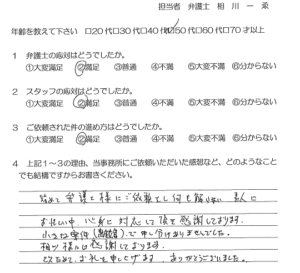 担当者 弁護士 相川一ゑ
年齢を教えて下さい □20代□30代□40代☑50代□60代□70才以上
1 弁護士の応対はどうでしたか。
①大変満足 ②満足 ③普通 ④不満 ⑤大変不満 ⑥分からない
2 スタッフの応対はどうでしたか。
①大変満足 ②満足 ③普通 ④不満 ⑤大変不満 ⑥分からない
3 ご依頼された件の進め方はどうでしたか。
①大変満足 ②満足 ③普通 ④不満 ⑤大変不満 ⑥分からない
4 上記1～3の理由、当事務所にご依頼いただいた感想など、どのようなこと
でも結構ですからお書きください。
初めて弁護士様にご依頼をし何も解らない 素人に
お忙しい中 心身に対応して頂き感謝しております。
小さな案件 で申し分けありませんでした。
相川様には感謝しております。
改めて、お礼を申し上げます。ありがとうございました。